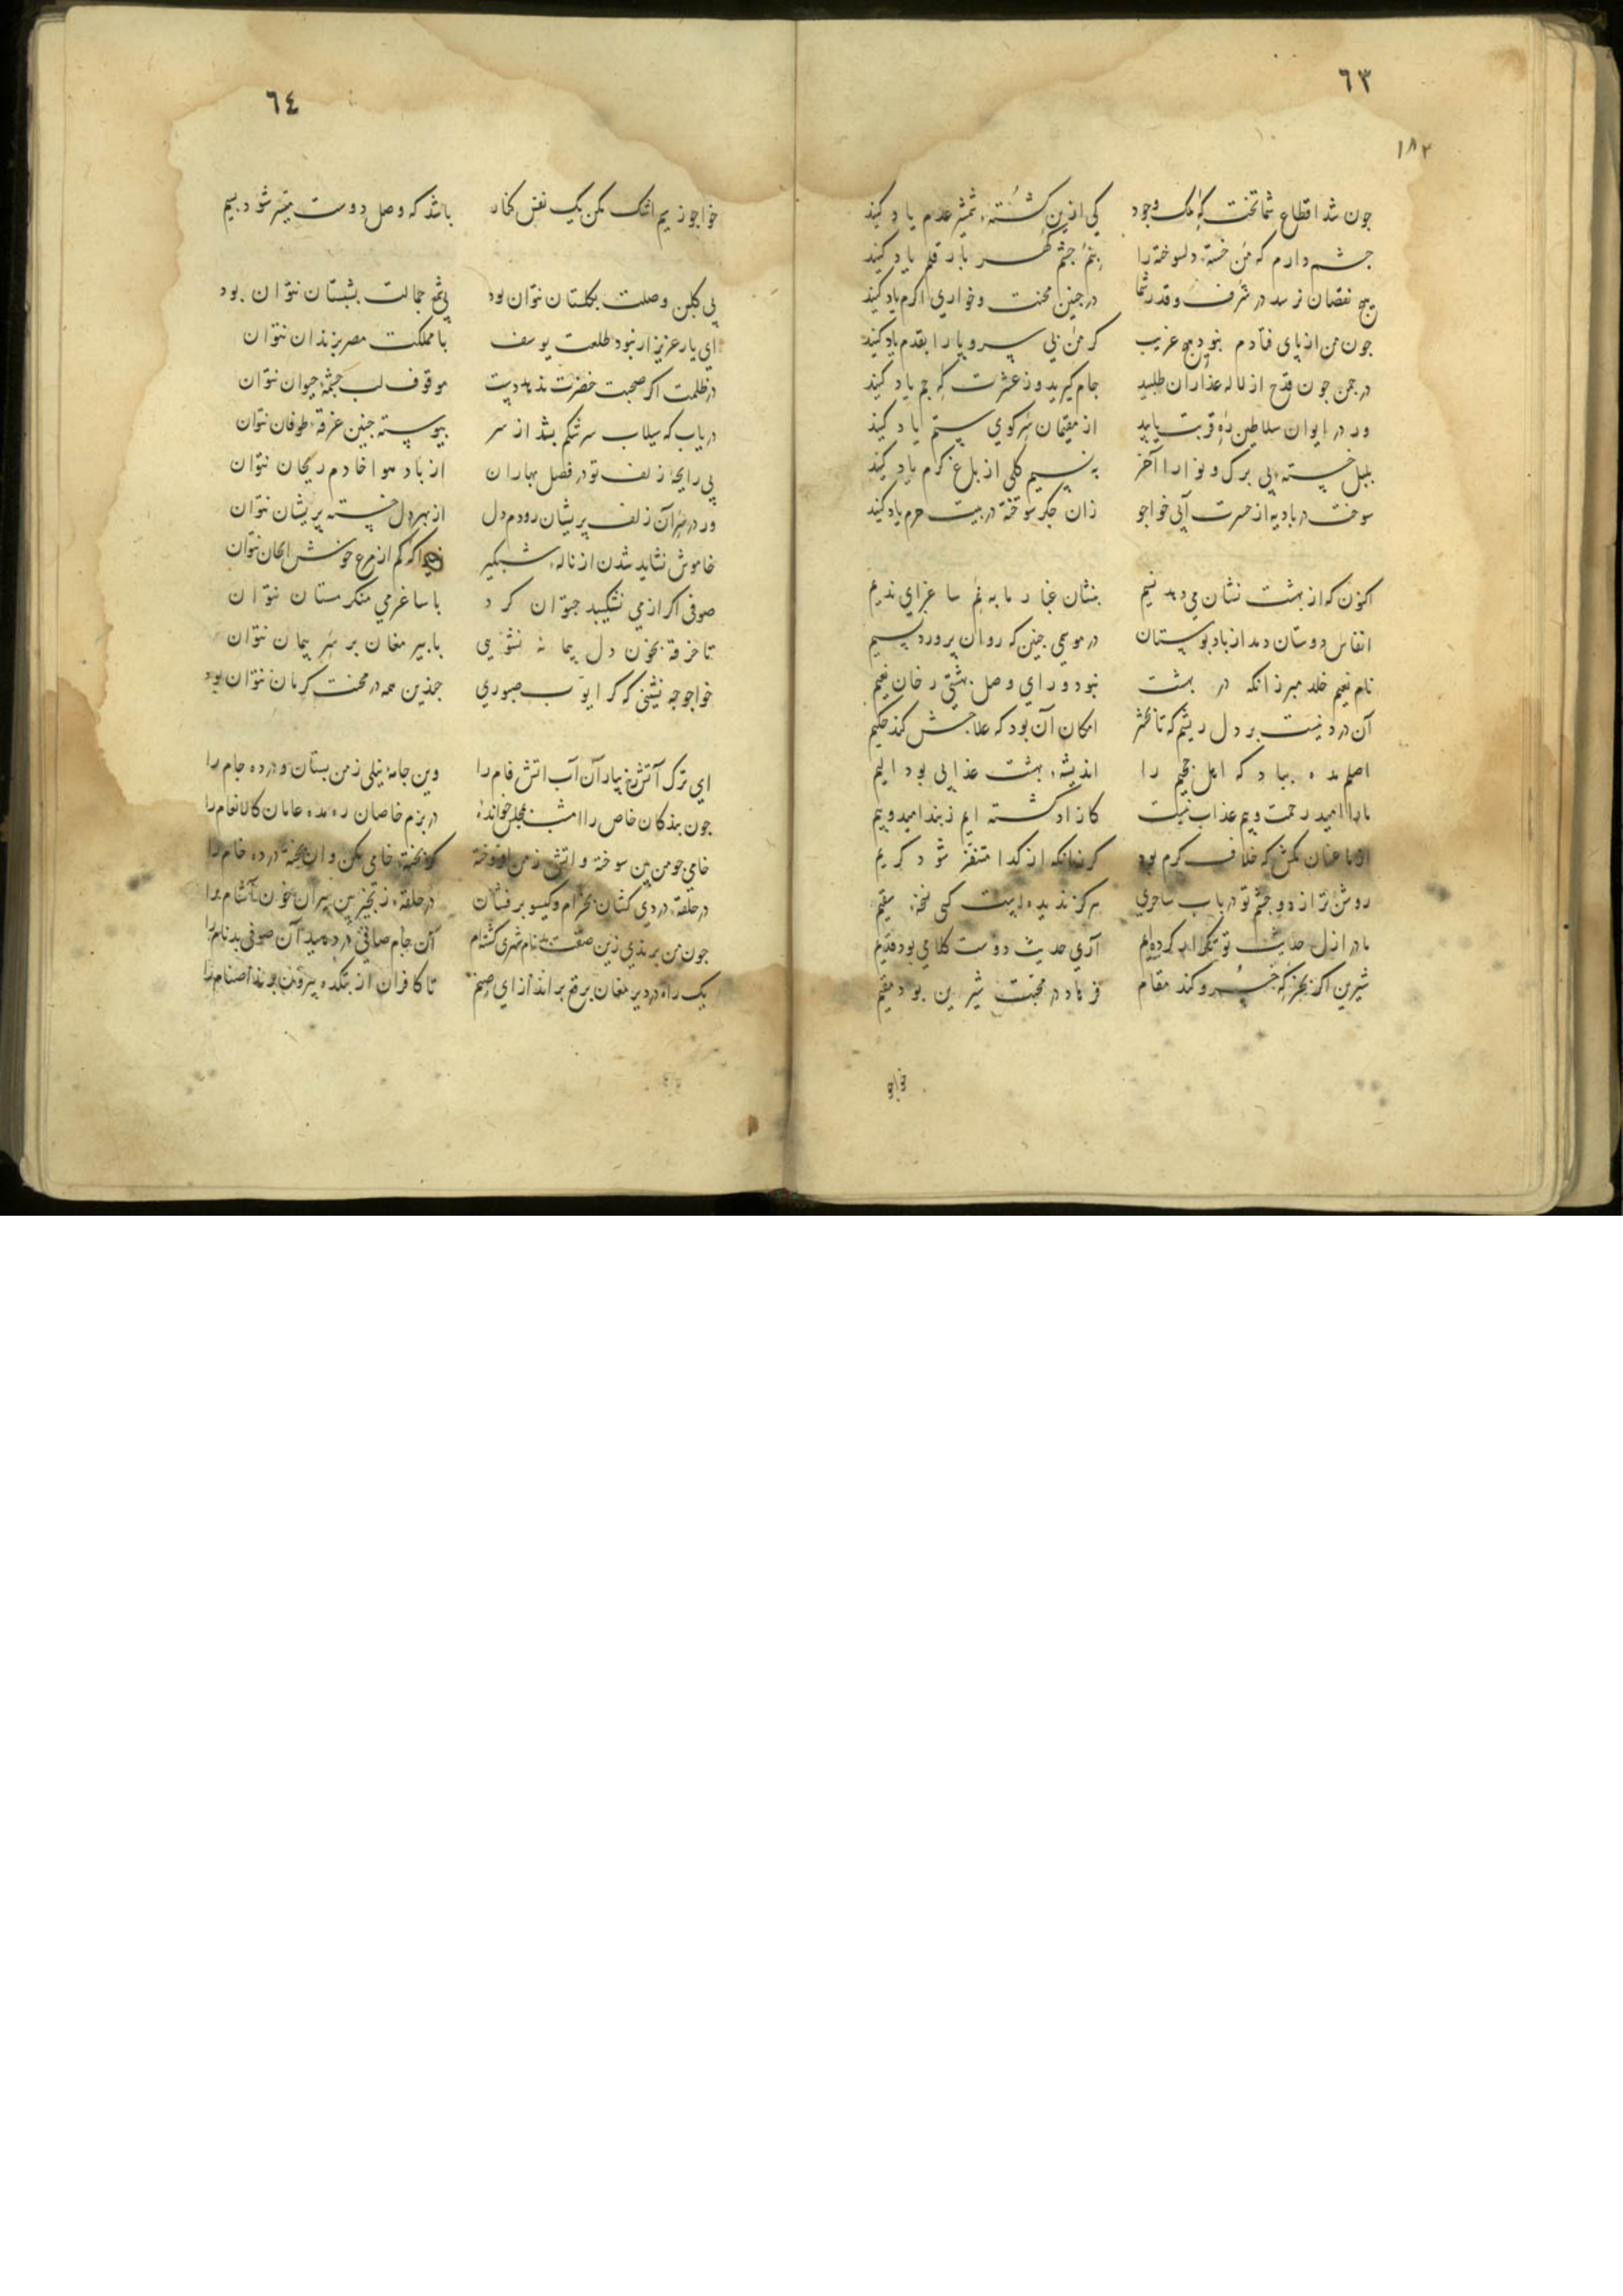 ٦٣
١٨٣
جون شد اقطاع شما تختکه ملک وجود کی ازین کشته شمشیر عدم یاد کنید
جشم دارم که من خسته دلسوخته را بنم جشم کهر بار قلم یاد کنید
هیج نقصان نرسد در شرف وقدر شما در جنین محنت وخواری اکرم یاد کنید
جون من از پای فتادم نبود هیج غریب کر من بی سر و پا را بقدم یاد کنید
در جمن جون قدح از لاله عذاران طلبید جام کیرید وز عشرتکه جم یاد کنید
ور در ایوان سلاطین ره قربت یابید از مقیمان سر کوی ستم یاد کنید
بلبل خسته بی برک و نوا را آخر به نسیم کلی از باغ کرم یاد کنید
سوخت در بادیه از حسرت آبی خواجو زان جکر سوخته در بیت حرم یاد کنید
اکنون که از بهشت نشان می دهد نسیم بنشان غبار ما به نم ساغر ای ندیم
انفاس دوستان دمد از باد بوستان در موسمی جنین که روان پرورد نسیم
نام نعیم خلد مبر زانکه در بهشت نبود ورای وصل بهشتی رخان نعیم
آن درد نیست بر دل ریشم که تا بحشر امکان آن بود که علاجش کند حکیم
اصلم مده بباد که اهل جحیم را اندیشه بهشت عذابی بود الیم
ما را امید رحمت وبیم عذاب نیست کازاد کشته ایم ز بند امید وبیم
از ما عنان مکش که خلاف کرم بود کر زانکه از کدا متنفر شود کریم
روشن تر از دو جشم تو در باب ساحری هرکز ندیده است کسی نسخه سقیم
ما در ازل حدیث تو تکرار کرده ایم آری حدیث دوست کلامی بود قدیم
شیرین اکر بحرکه خسرو کند مقام فرهاد در محبت شیرین بود مقیم
خواجو
٦٤
خواجو ز سیم اشک مکن یک نفس کنار باشد که وصل دوست میسر شود بسیم
بی کلبن وصلت بکلستان نتوان بود بی شمع جمالت بشبستان نتوان بود
ای یار عزیز ار نبود طلعت یوسف با مملکت مصر بزندان نتوان
در ظلمت اکر صحبت خضرت ندهد دست موقوف لب جشمه حیوان نتوان
دریاب که سیلاب سرشکم بشد از سر پیوسته جنین غرقه طوفان نتوان
بی رایحه زلف تو در فصل بهاران از باد هوا خادم ریحان نتوان
ور در سر آن زلف پریشان رودم دل از بهر دل خسته پریشان نتوان
خاموش نشاید شدن از ناله شبکیر زیرا که کم از مرغ خوش الحان نتوان
صوفی اکر از می نشکیبد جتوان کرد با ساغر می منکر مستان نتوان
تا خرقه بخون دل پیمانه نشویی با پیر مغان بر سر پیمان نتوان
خواجو جه نشینی که کر ایوب صبوری جندین همه در محنت کرمان نتوان بود
ای ترک آتش رخ بیار آن آب اتش فام را وین جامه نیلی ز من بستان و در ده جام را
جون بندکان خاص را امشب بمجلس خوانده در بزم خاصان ره مده عامان کالانعام را
خامی جو من بین سوخته واتش ز من افروخته کر پخته خامی مکن وان پخته در ده خام را
در حلقه دردی کشان بخرام وکیسو برفشان در حلقه زنجیر بین پیران خون آشام را
جون من برندی زین صفت بدنام شهری کشته ام آن جام صافی در دهید آن صوفی بدنام را
یک راه در دیر مغان برقع برانداز ای صنم تا کافران از بتکده بیرون برند اصنام را